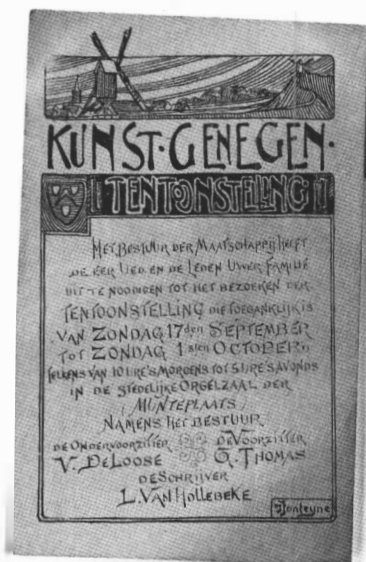 KUNST·GENEGEN·
TENTOONSTELLING
HET BESTUUR DER MAATSCHAPPIJ HEEFT
DE EER UED. EN DE LEDEN UWER FAMILIE
UIT TE NOODIGEN TOT HET BEZOEKEN DER
TENTOONSTELLING DIE TOEGANKLIJK IS
VAN ZONDAG 17den SEPTEMBER
TOT ZONDAG 1sten OCTOBER
TELKENS VAN 10 URE 'S MORGENS TOT 5 URE 'S AVONDS
IN DE STEDELIJKE ORGELZAAL DER
(MUNTEPLAATS)
NAMENS HET BESTUUR
DE ONDERVOORZITTER DE VOORZITTER
V. DELOOSE G. THOMAS
DE SCHRIJVER
L. VAN HOLLEBEKE
Jonteyne